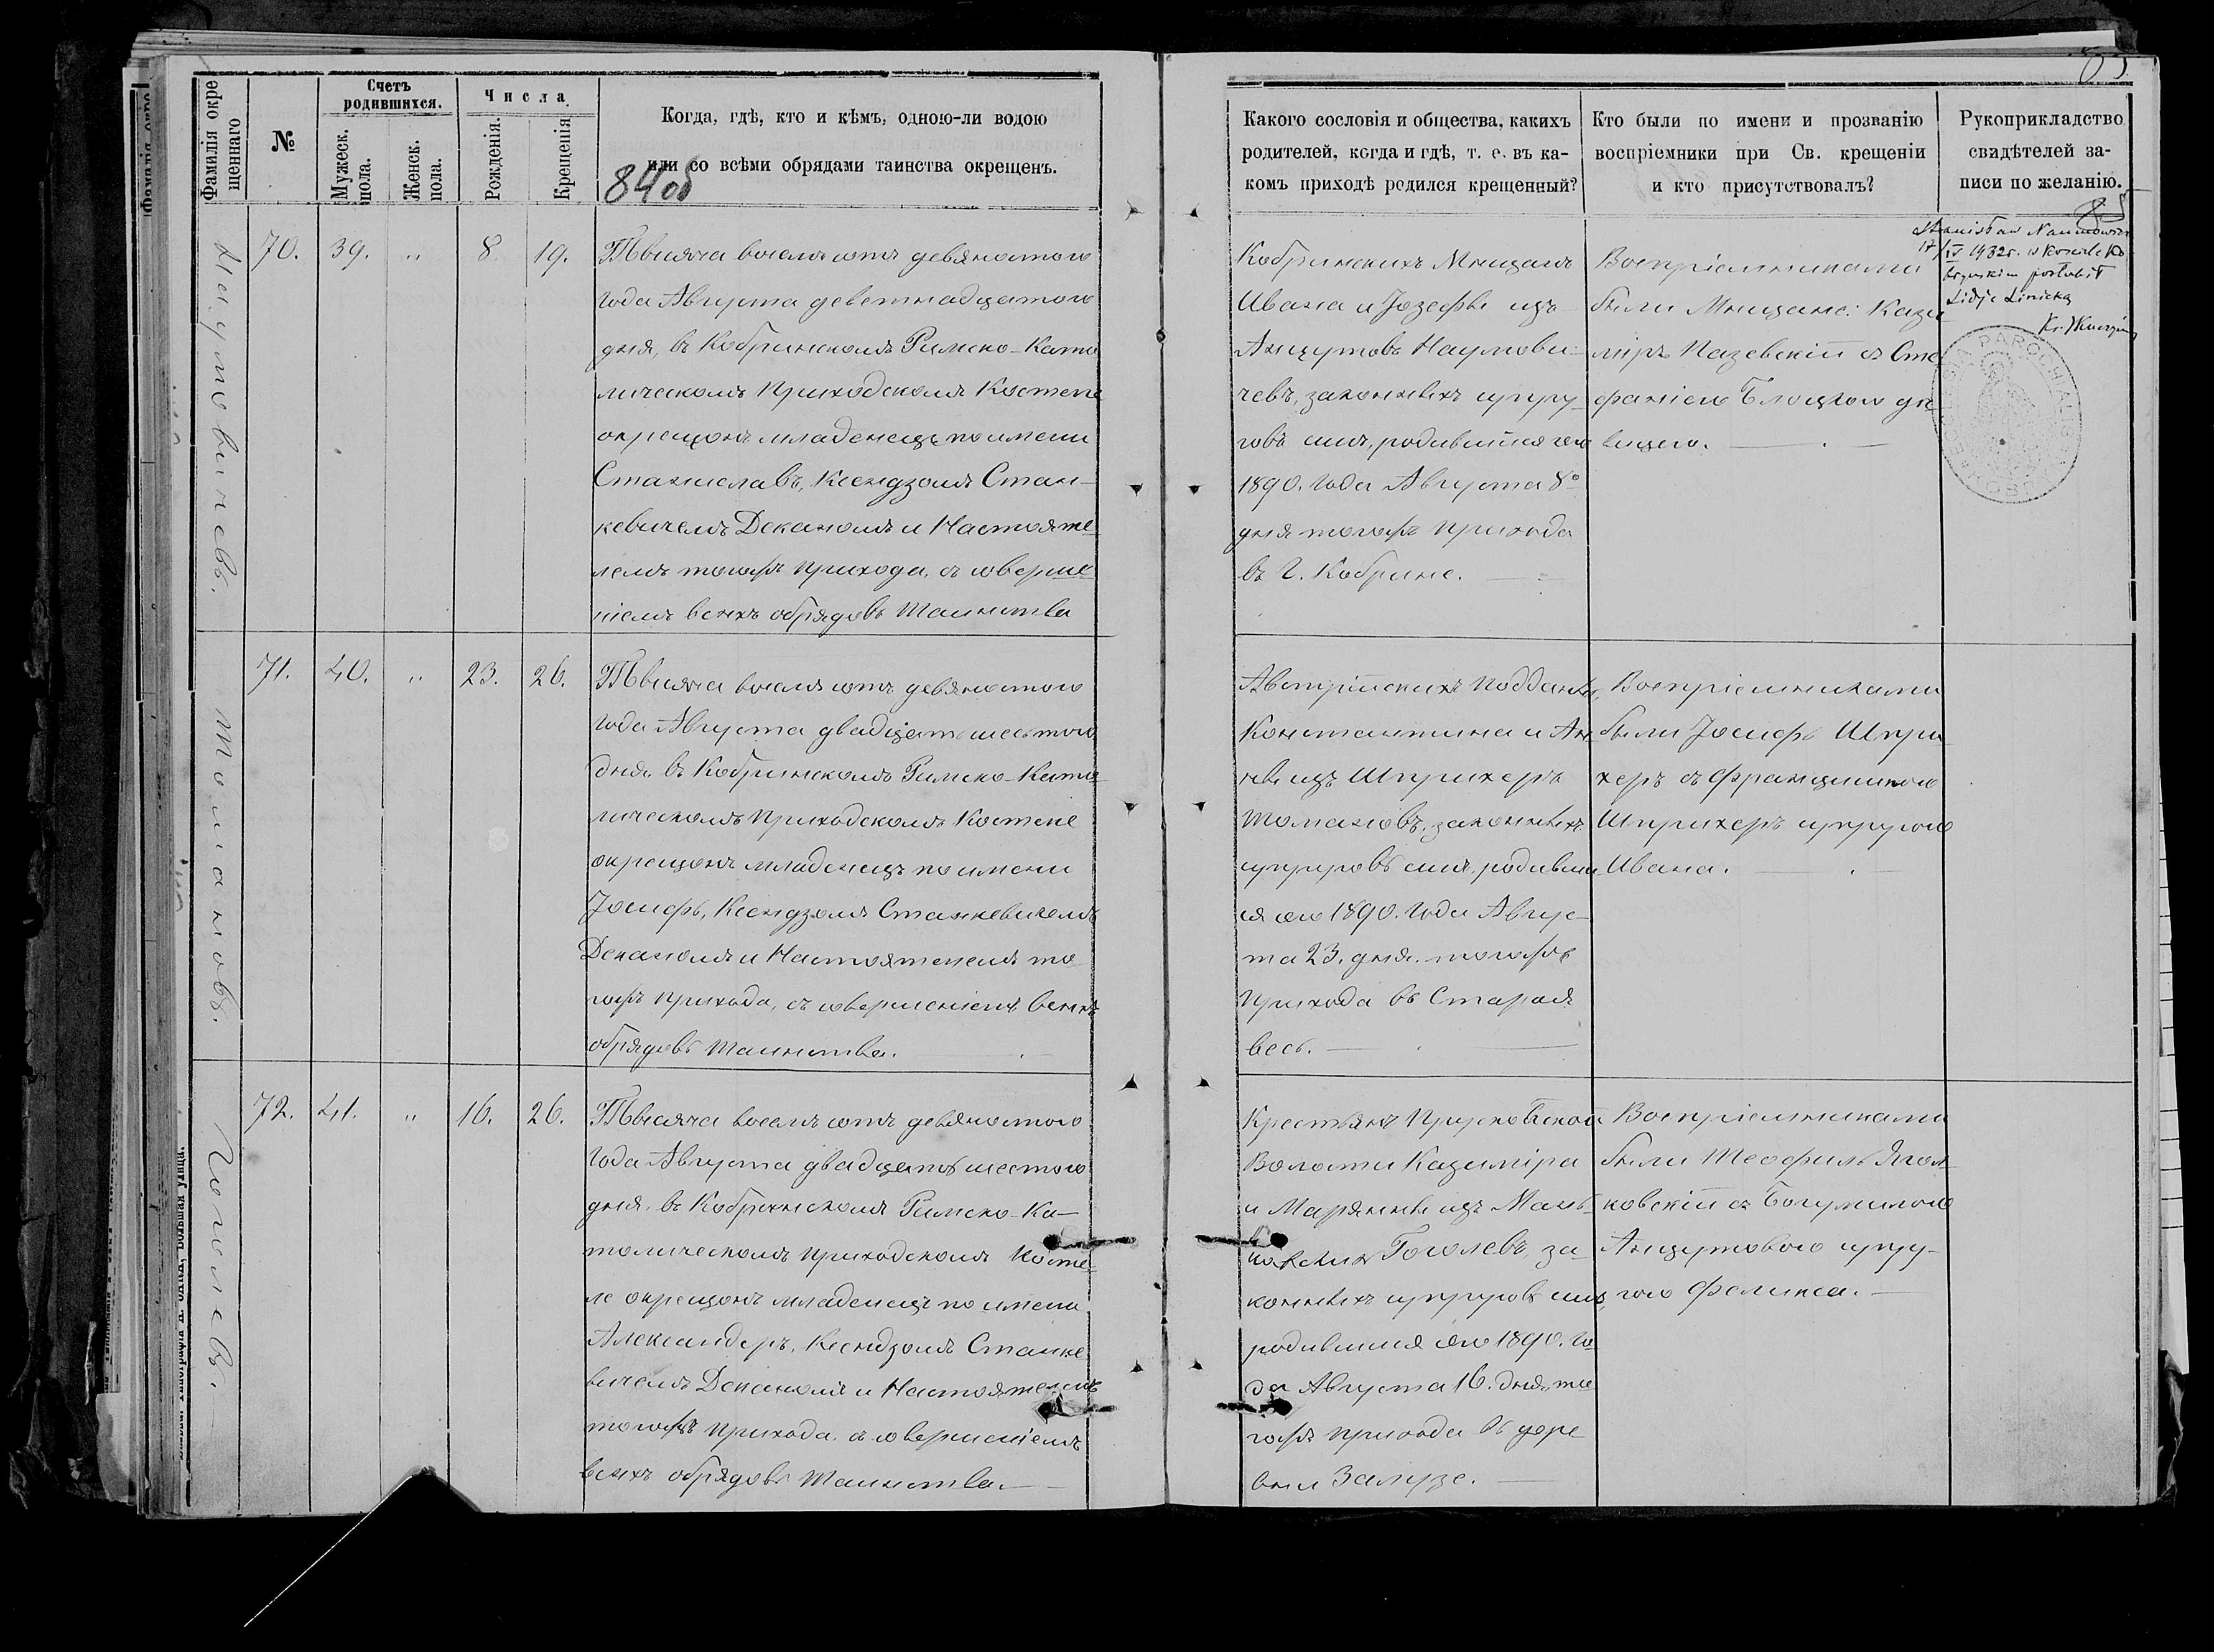 Фамилія окре
щеннаго
№
Счетъ
родившихся.
Мужеск.
пола.
Женск.
пола.
Числа
Рожденія.
Крещенія
Когда, гдѣ, кто и кѣмъ, одною-ли водою
или со всѣми обрядами таинства окрещенъ.
84 об
Наумовичевъ.
70. 39. " 8. 19.
Тысяча восемь сотъ девяностого
года Августа деветнадцатого
дня, въ Кобринскомъ Римско-Като
лическомъ Приходскомъ Костеле
окрещонъ младенецъ по имени
Станиславъ, Ксендзомъ Стан-
кевичемъ Деканомъ и Настояте
лемъ тогожъ Прихода, съ соверше
ніемъ всехъ обрядовъ Таинства
Томановъ.
71. 40. " 23. 26.
Тысяча восемь сотъ девяностого
года Августа двадцать шестого
дня, въ Кобринскомъ Римско-Като
лическомъ Приходскомъ Костеле
окрещонъ младенецъ по имени
Іосифъ, Ксендзомъ Станкевичемъ
Деканомъ и Настоятелемъ то
гожъ Прихода, съ совершеніемъ всехъ
обрядовъ Таинства.
Гоголевъ.
72. 41. " 16. 26.
Тысяча восемь сотъ девяностого
года Августа двадцать шестого
дня, въ Кобринскомъ Римско-Ка-
толическомъ приходскомъ Косте
ле окрещонъ младенецъ по имени
Александеръ, Ксендзомъ Станке
вичемъ Деканомъ и Настоятелемъ
тогожъ прихода, съ совершеніемъ
всехъ обрядовъ Таинства.
Какого сословія и общества, какихъ
родителей, когда и гдѣ, т. е. въ ка-
комъ приходѣ родился крещенный?
Кто были по имени и прозванію
воспріемники при Св. крещеніи
и кто присутствовалъ?
Рукоприкладство
свидѣтелей за-
писи по желанію.
85
Кобринскихъ Мещанъ
Ивана и Іозефы изъ
Анцутовъ Наумови-
чевъ, законныхъ супру-
говъ сынъ, родившійся сего
1890. года Августа 8º
дня тогожъ прихода
въ Г. Кобрине.
Воспріемниками
были Мещане: Кази
міръ Пазевскій съ Сте
фаніею Блоцкою де
вицею.
Stanisław Naumowicz
17/IV 1932r. w kościele Ko
bryńskim poślubił
Lidję
Австрійскихъ Подданных
Константина и Ан-
ны изъ Шприхеръ
Томановъ, законныхъ
супруговъ сынъ, родивши
ся сего 1890. года Авгус-
та 23. дня. тогожъ
Прихода въ Старая
весь.
Воспріемниками
были Іосифъ Шпри
херъ съ Францишкою
Шприхеръ супругою
Ивана.
Крестьянъ Прусковской
Волости Казиміра
и Маріянны изъ Мань-
ковскихъ Гоголевъ, за-
конныхъ супруговъ сынъ
родившійся сего 1890. го
да Августа 16. дня, то
гожъ прихода въ дере
вни Залузе.
Воспріемниками
были Теофиль Ягол
ковскій съ Богумилою
Анцутовою супру-
гою Феликса.